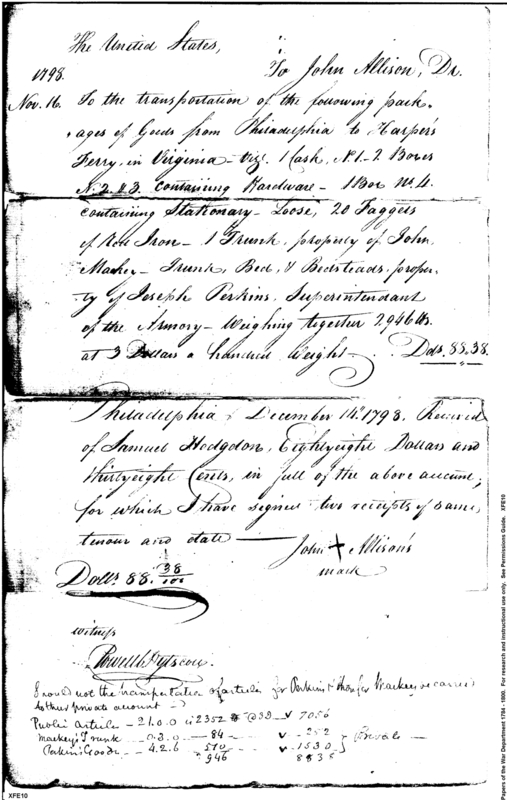 The United States,
To John Allison, Dr.
1798.
Nov. 16. To the transportation of the following pack-
ages of Goods from Philadelphia to Harper's
Ferry, in Virginia - Viz. 1 Cask, No. 1 - 2 Boxes
N. 2 & 3. containing Hardware - 1 Box No. 4.
containing Stationary - Loose, 20 Faggets
of Rod Iron - 1 Trunk, property of John
Mackey - Trunk, Bed, & Bedsteads, proper-
ty of Joseph Perkins, Superintendant
of the Armory - Weighing together 2946 lbs.
at 3 Dollars a hundred Weight - Dolls. 88.38.
Philadelphia December 14th 1798. Received
of Samuel Hodgdon, Eightyeight Dollars and
thirtyeight Cents, in full of the above account;
for which I have signed two receipts of same
tenour and date —
John + Allison's
mark
Dolls. 88. 38/100
witness
should not the transportation of articles for Perkins & than for Mackey be carried
to their private account
Public Articles - 21.0.0 is 2352 @ 3D - 7056
Mackey's Trunk - 0.3.0 - 84 - 252
Perkins Goods - 4.2.6 - 510 - 1530 } Private
2946 8838
XFE10
Papers of the War Department 1784 - 1800. For research and instructional use only. See Permissions Guide. XFE10